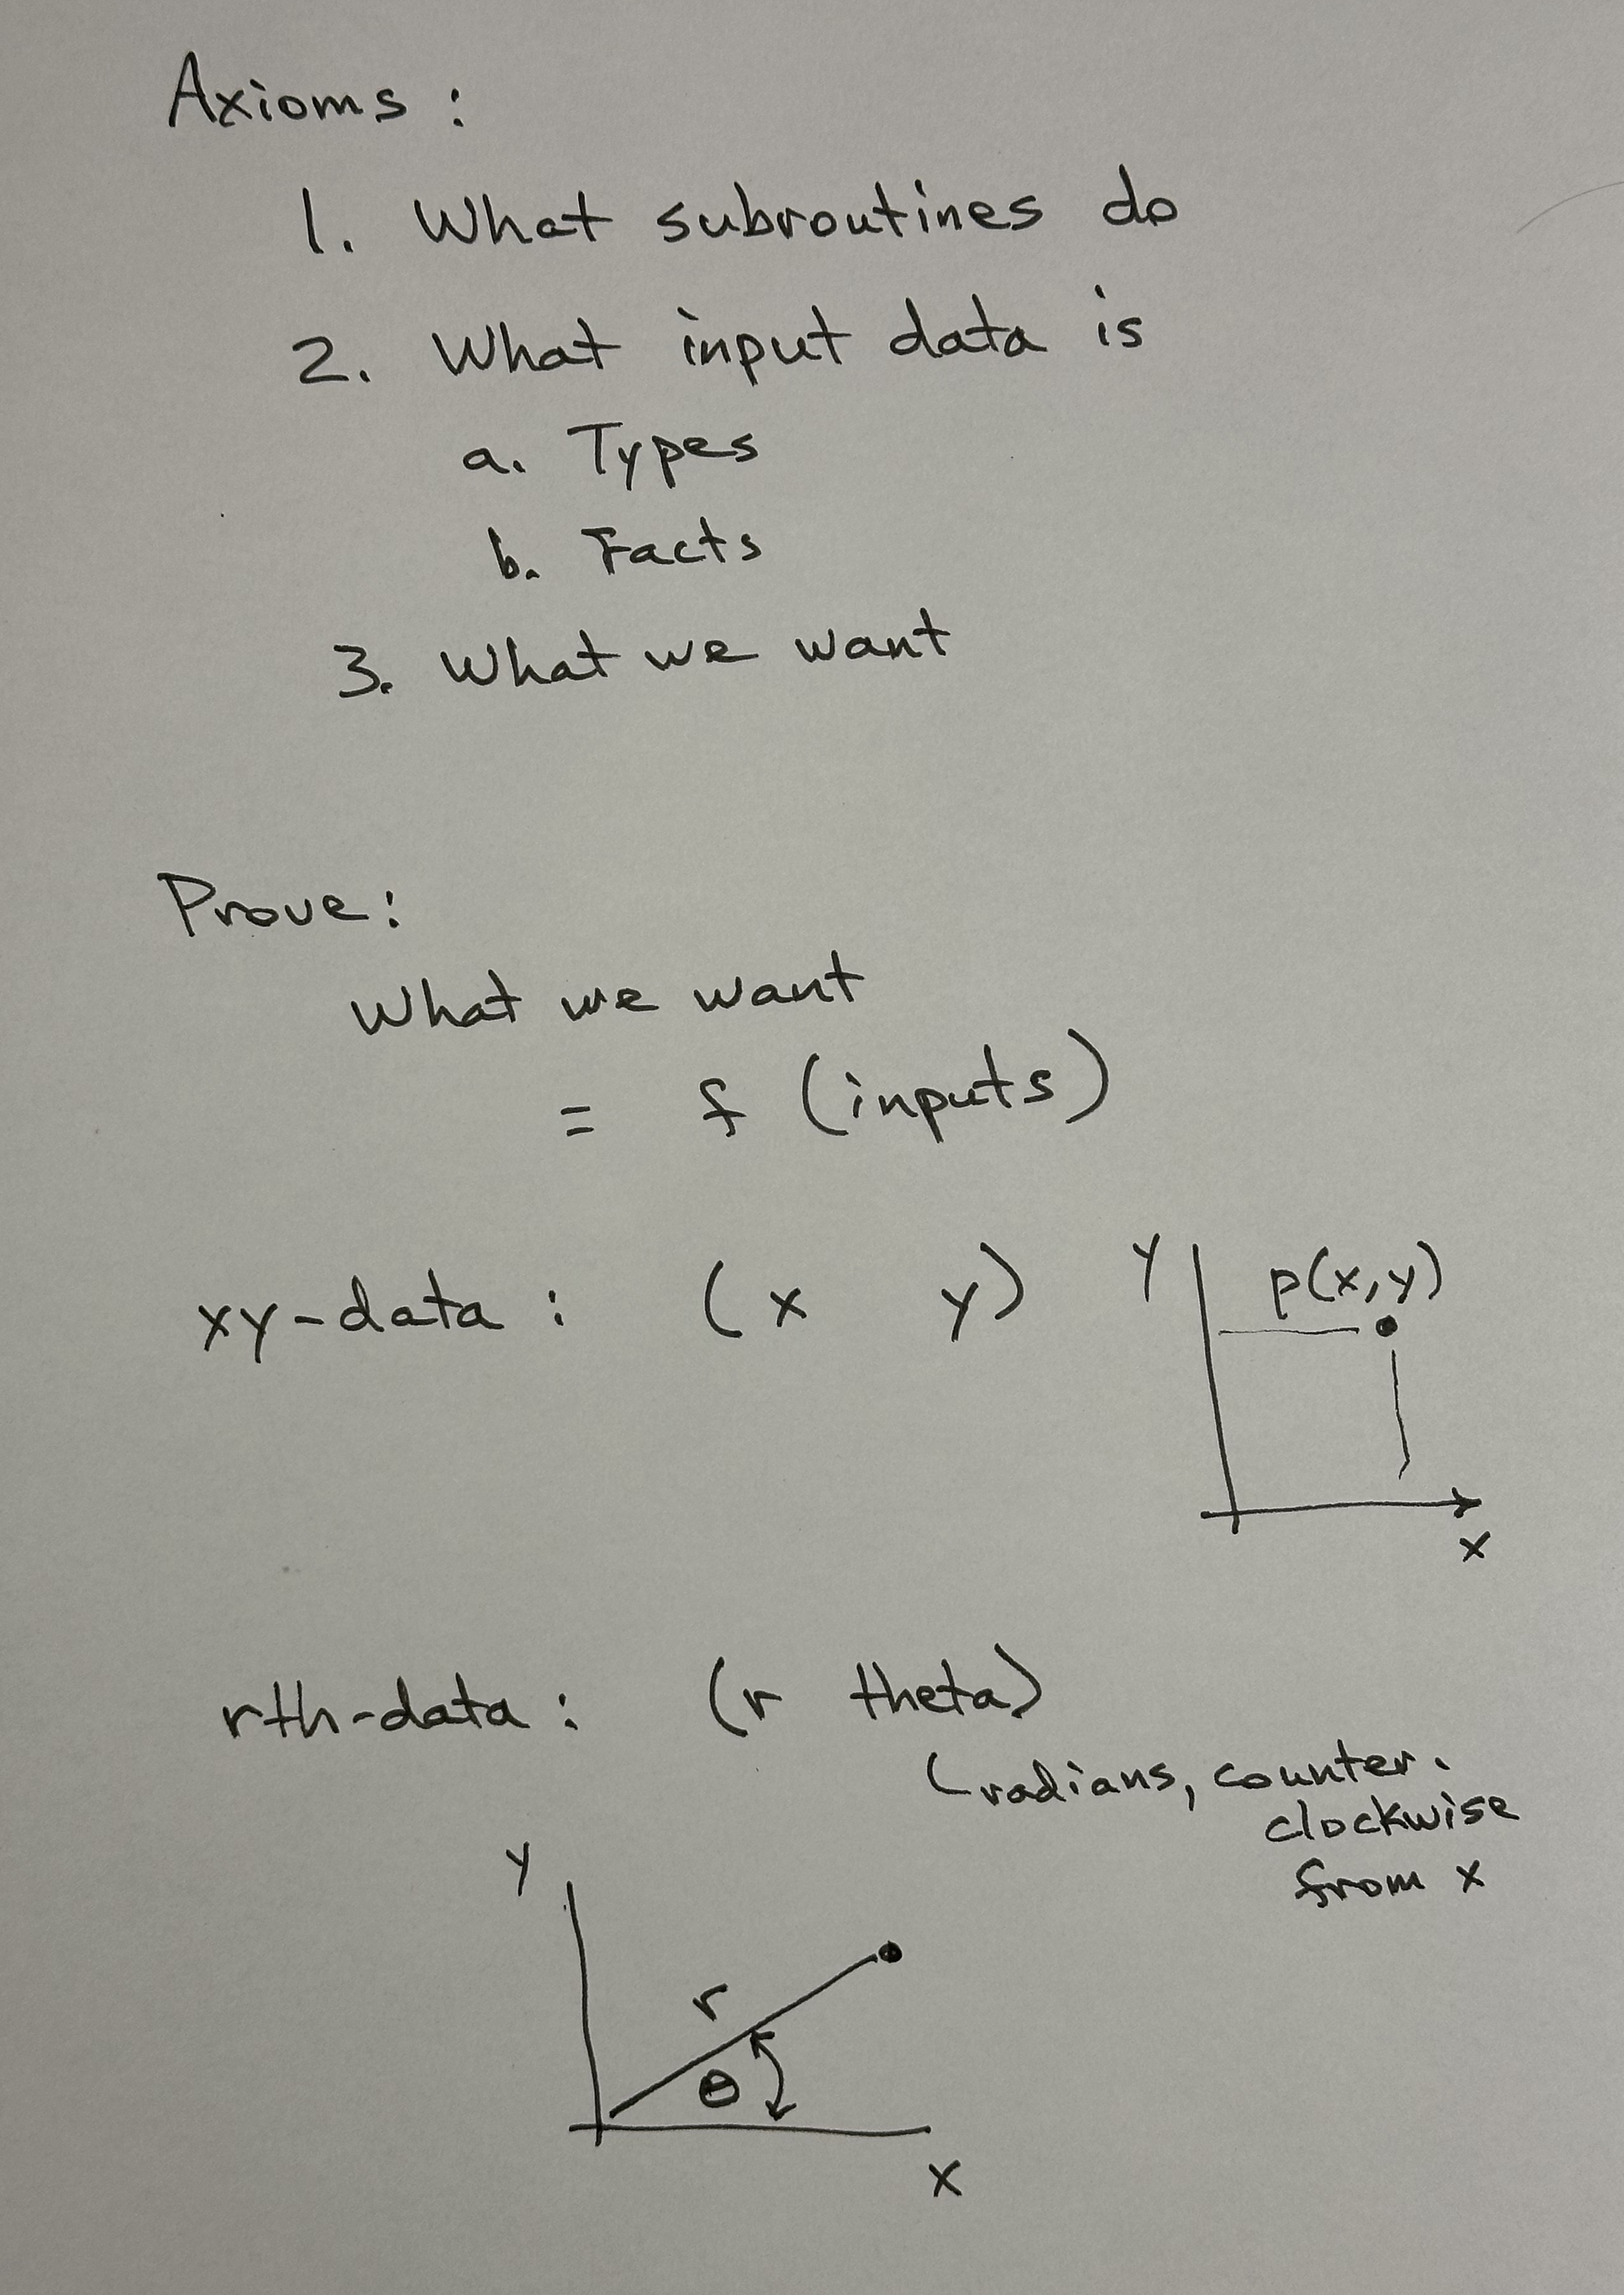 Axioms :
1. What subroutines do
2. What input data is
a. Types
b. Facts
3. What we want
Prove:
What we want
= f (inputs)
xy-data : (x y)
y
p(x,y)
x
rth-data : (r theta)
(radians, counter.
clockwise
from x
y
r
θ
x